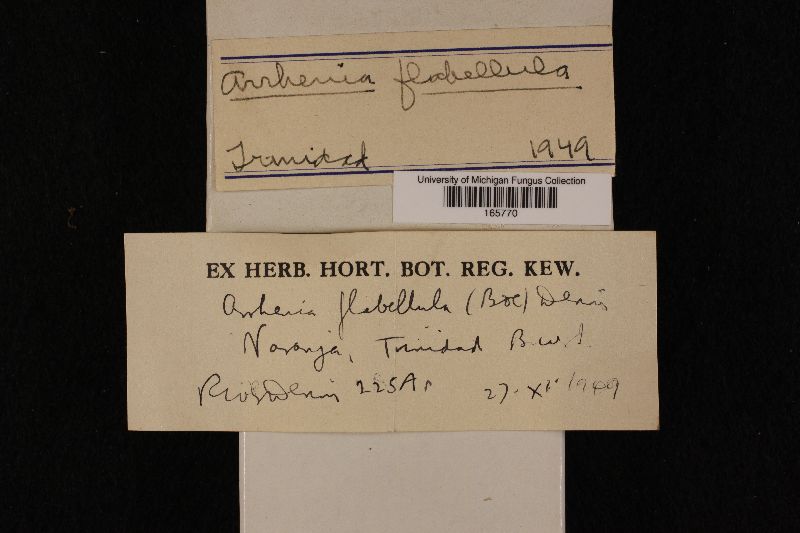 Arrhenia flabellula
Trinidad 1949
University of Michigan Fungus Collection
165770
EX HERB. HORT. BOT. REG. KEW.
Arrhenia flabellula (B&C) Dennis
Naranja, Trinidad B.W.I.
Dennis 225A 27. XI 1949